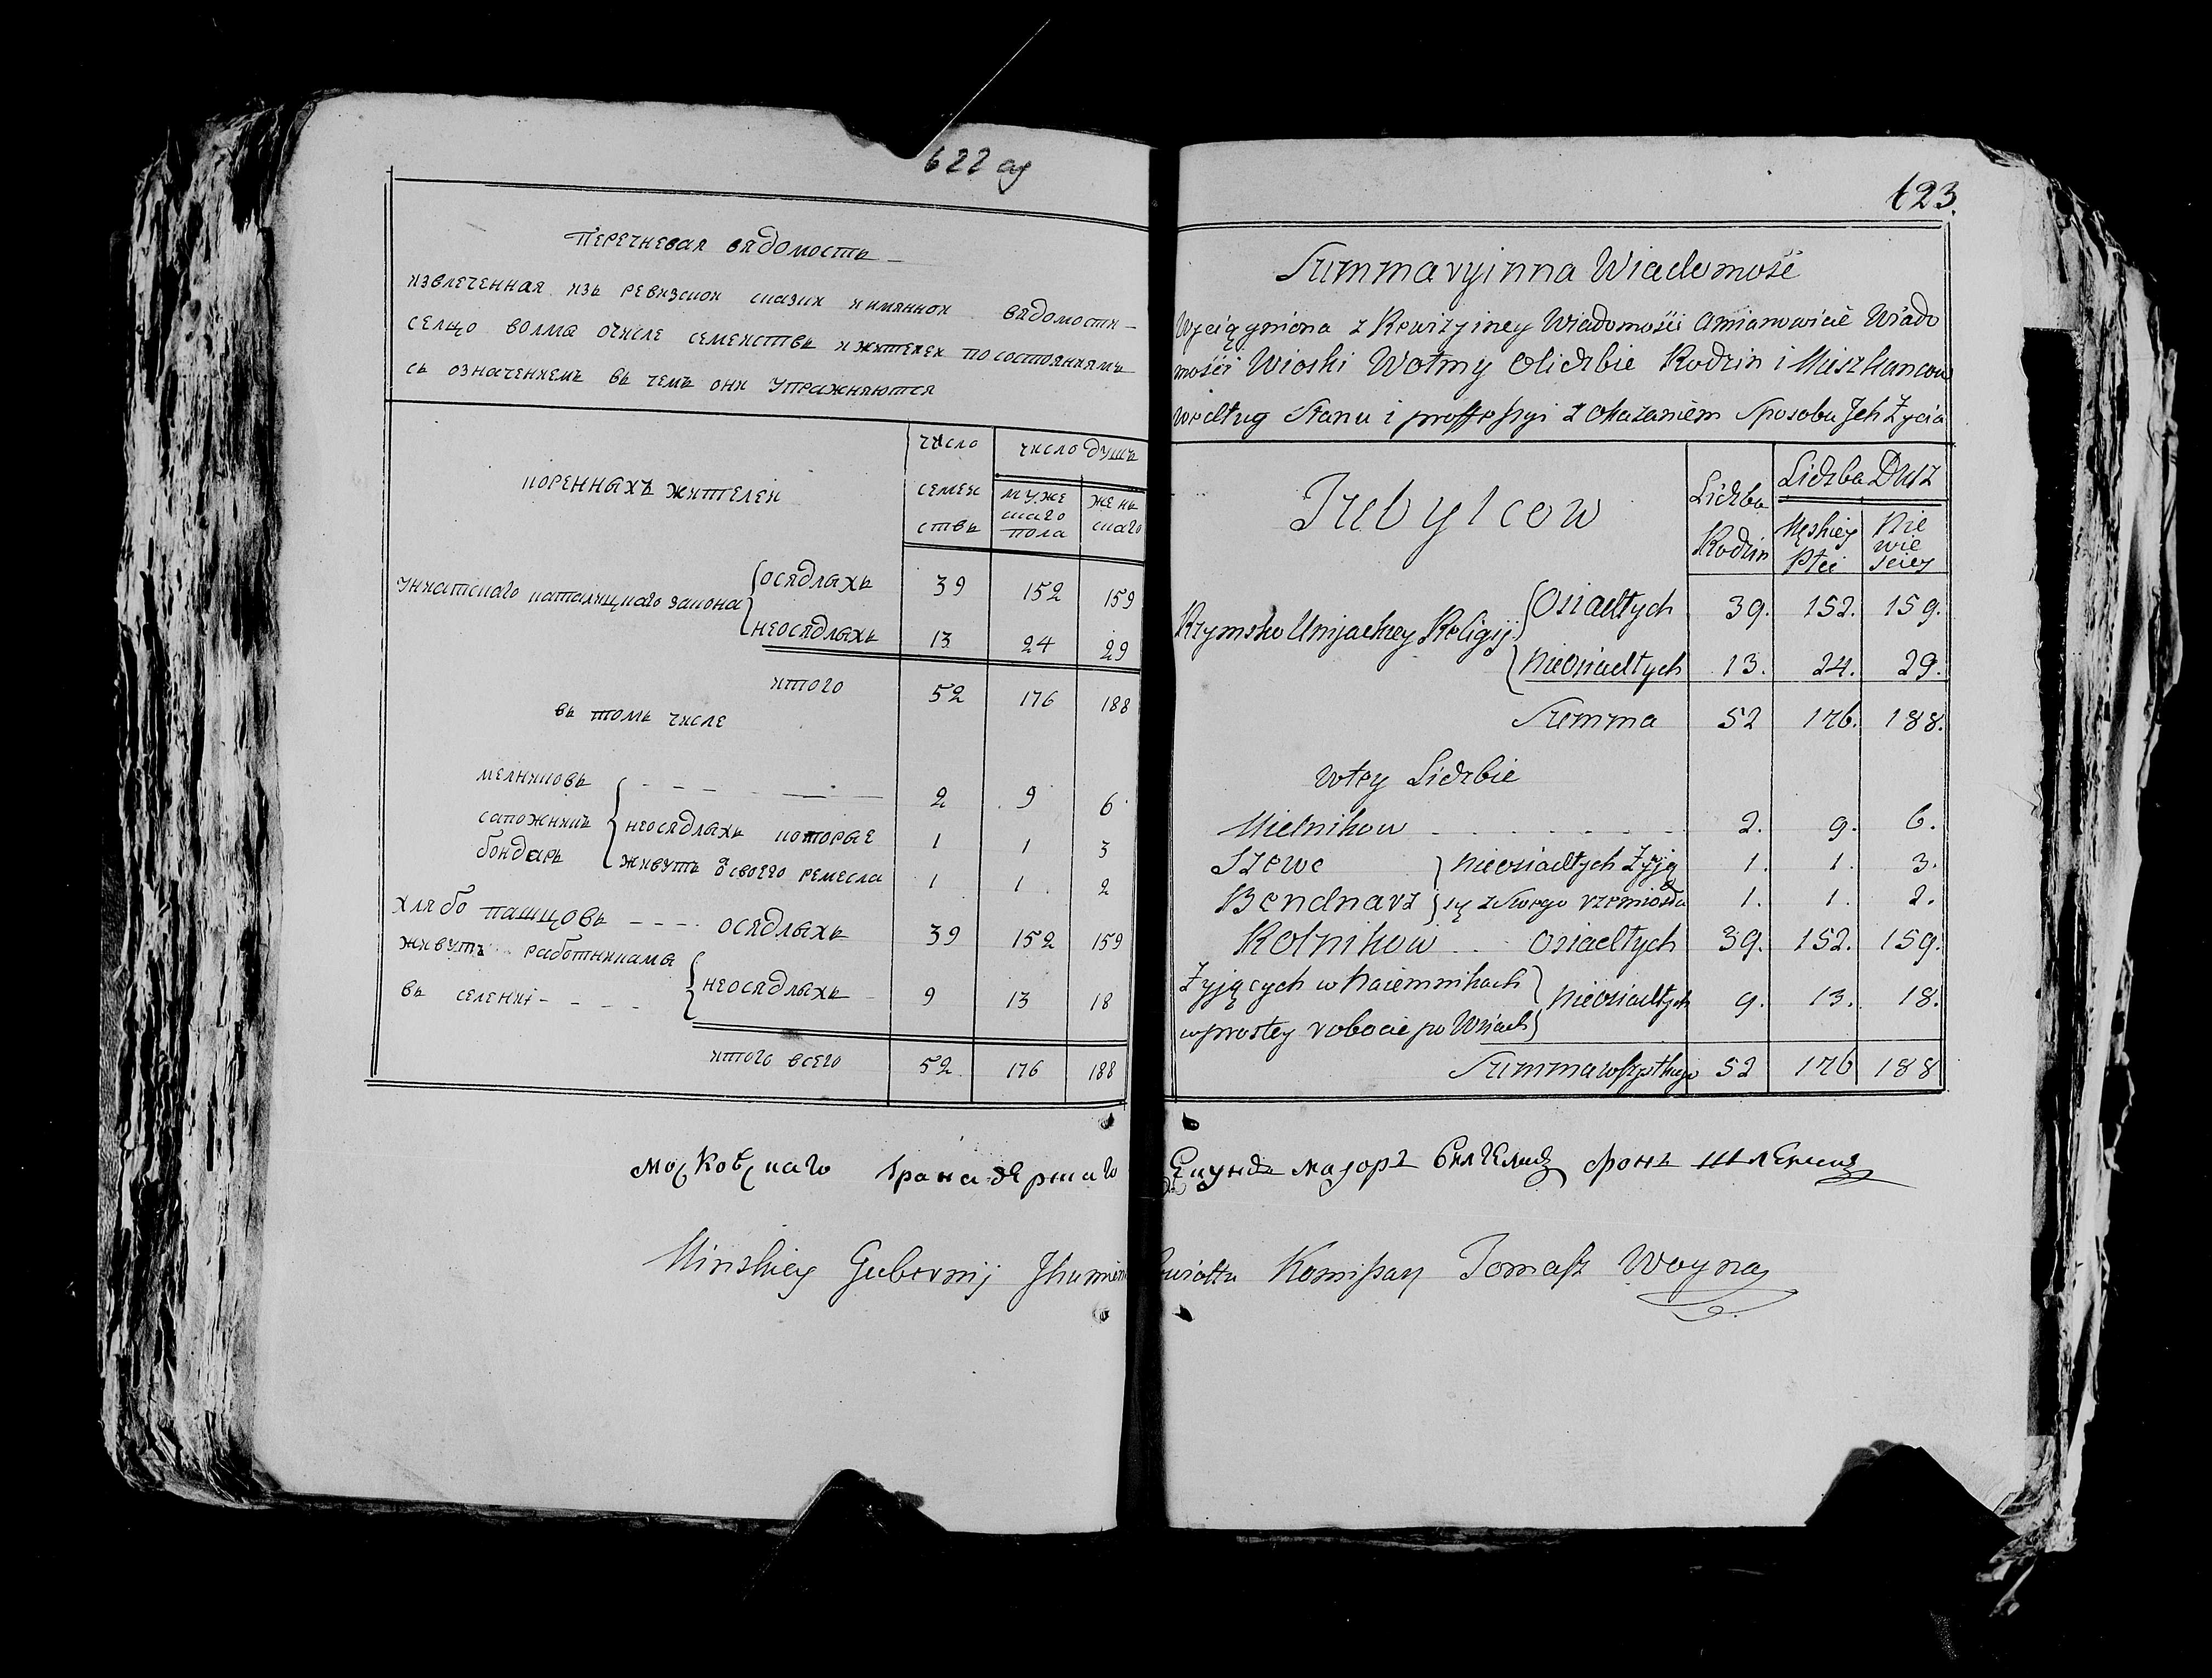 622 об
Перечневая вѣдомость
извлеченная изъ ревизской сказки и имянной вѣдомости
сельцо волма о числе семействъ и жителей по состояниямъ
съ означениемъ въ чемъ они упражняются
коренныхъ жителей
число семей ствъ
число душъ
муже скаго пола
жень скаго
униатскаго католицкаго закона
осѣдлыхъ 39 152 159
неосѣдлыхъ 13 24 29
итого 52 176 188
въ томъ числе
мелниковъ 2 9 6
сапожникъ неосѣдлыхъ которые 1 1 3
бондарь живутъ ѿ своего ремесла 1 1 2
хлѣбо пашцовъ осѣдлыхъ 39 152 159
живутъ работниками
въ селении неосѣдлыхъ 9 13 18
итого всего 52 176 188
623.
Summaryinna Wiadomość
Wyciągniona z Rewizyiney Wiadomości Amianowicie Wiado
mości Wioski Wołmy Oliczbie Rodzin i Mieszkancow
Według Stanu i proffessyi z okazaniem Sposobu Jch Życia
Tubylcow
Liczba Rodzin
Liczba Dusz
Męskiey Płci
Nie wie sciey
Rzymsko Unijackiey Religij
Osiadłych 39. 152. 159.
Nieosiadłych 13. 24. 29.
Summa 52 176. 188.
wtey Liczbie
Mielnikow 2. 9. 6.
Szewc nieosiadłych żyją 1. 1. 3.
Bendnarz się z Swego rzemiosła 1. 1. 2.
Rolnikow Osiadłych 39. 152. 159.
Żyjących w Naiemnikach
w prostey robocie po Wsiach Nieosiadłych 9. 13. 18.
Summa wszystkiego 52 176 188
Московскаго Гранадерскаго Секундъ маіоръ фонъ
Minskiey Gubernij Jhumen Powiattu Komissarz Tomasz Woyna